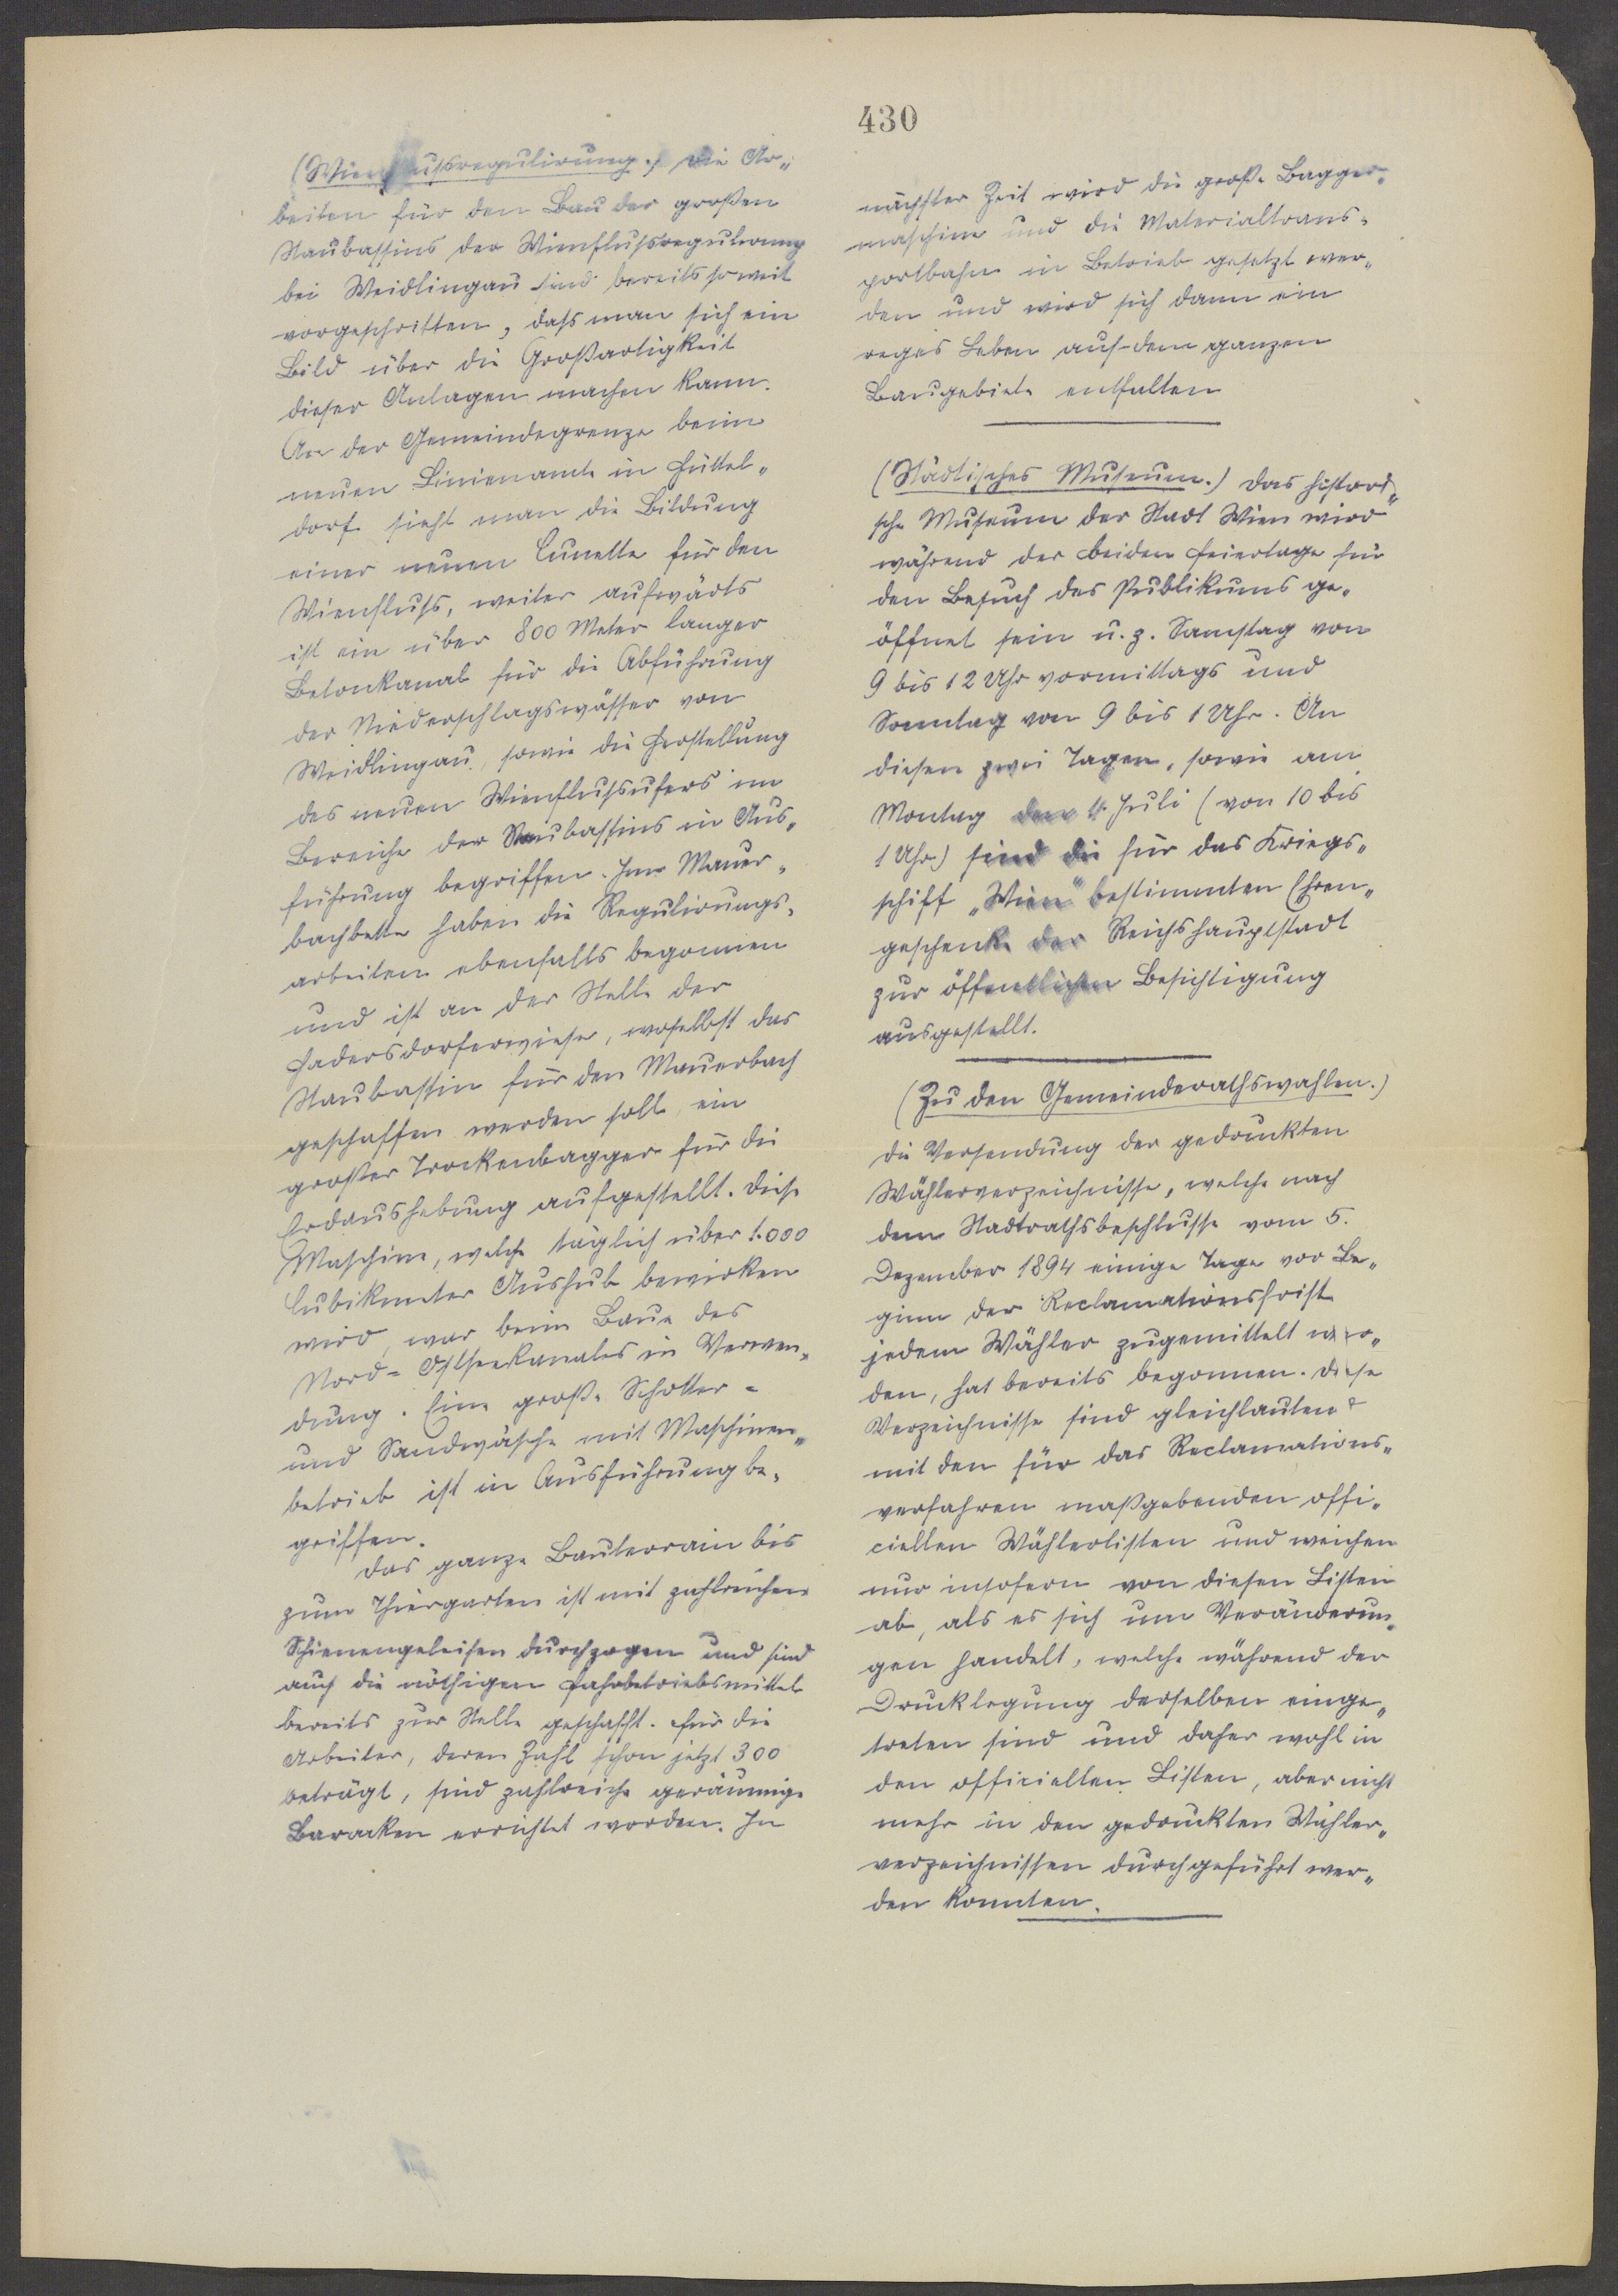 430
(Wienflußregulirung.) Die Ar„
beiten für den Bau der großen
Staubassins der Wienflußregulirung
bei Weidlingau sind bereits so weit
vorgeschritten, daß man sich ein
Bild über die Großartigkeit
dieser Anlagen machen kann.
An der Gemeindegrenze beim
neuen Linienamte in Hüttel„
dorf sieht man die Bildung
einer neuen Cunette für den
Wienfluß, weiter aufwärts
ist ein über 800 Meter langer
Betonkanal für die Abführung
der Niederschlagswässer von
Weidlingau, sowie die Herstellung
des neuen Wienflußufers im
Bereiche der Staubassins in Aus„
führung begriffen. Im Mauer„
bachbette haben die Regulirungs„
arbeiten ebenfalls begonnen
und ist an der Stelle der
Hadersdorferwiese, woselbst das
Staubassin für den Mauerbach
geschaffen werden soll, ein
großer Trockenbagger für die
Erdaushebung aufgestellt. Diese
Maschine, welche täglich über 1.000
Cubikmeter Aushub bewirken
wird, war beim Baue des
Nord-Ostseekanales in Verwen„
dung. Eine große Schotter-
und Sandwäsche mit Maschinen„
betrieb ist in Ausführung be„
griffen.
Das ganze Bauterrain bis
zum Thiergarten ist mit zahlreichen
Schienengeleisen durchzogen und sind
auch die nöthigen Fahrbetriebsmittel
bereits zur Stelle geschafft. Für die
Arbeiter, deren Zahl schon jetzt 300
beträgt, sind zahlreiche geräumige
Baracken errichtet worden. In
nächster Zeit wird die große Bagger„
maschine und die Materialtrans„
portbahn in Betrieb gesetzt wer„
den und wird sich dann ein
reges Leben auf dem ganzen
Baugebiete entfalten
(Städtisches Museum.) Das histori„
sche Museum der Stadt Wien wird
während der beiden Feiertage für
den Besuch des Publikums ge„
öffnet sein u. z. Samstag von
9 bis 12 Uhr vormittags und
Sonntag von 9 bis 1 Uhr. An
diesen zwei Tagen, sowie am
Montag den 1. Juli (von 10 bis
1 Uhr) sind die für das Kriegs„
schiff „Wien" bestimmten Ehren„
geschenke der Reichshauptstadt
zur öffentlichen Besichtigung
ausgestellt.
(Zu den Gemeinderathswahlen.)
Die Versendung der gedruckten
Wählerverzeichnisse, welche nach
dem Stadtrathsbeschlusse vom 5.
Dezember 1894 einige Tage vor Be„
ginn der Reclamationsfrist
jedem Wähler zugemittelt wer„
den, hat bereits begonnen. Diese
Verzeichnisse sind gleichlautend
mit den für das Reclamations„
verfahren maßgebenden offi„
ciellen Wählerlisten und weichen
nur insofern von diesen Listen
ab, als es sich um Veränderun„
gen handelt, welche während der
Drucklegung derselben einge„
treten sind und daher wohl in
den officiellen Listen, aber nicht
mehr in den gedruckten Wähler„
verzeichnissen durchgeführt wer„
den konnten.